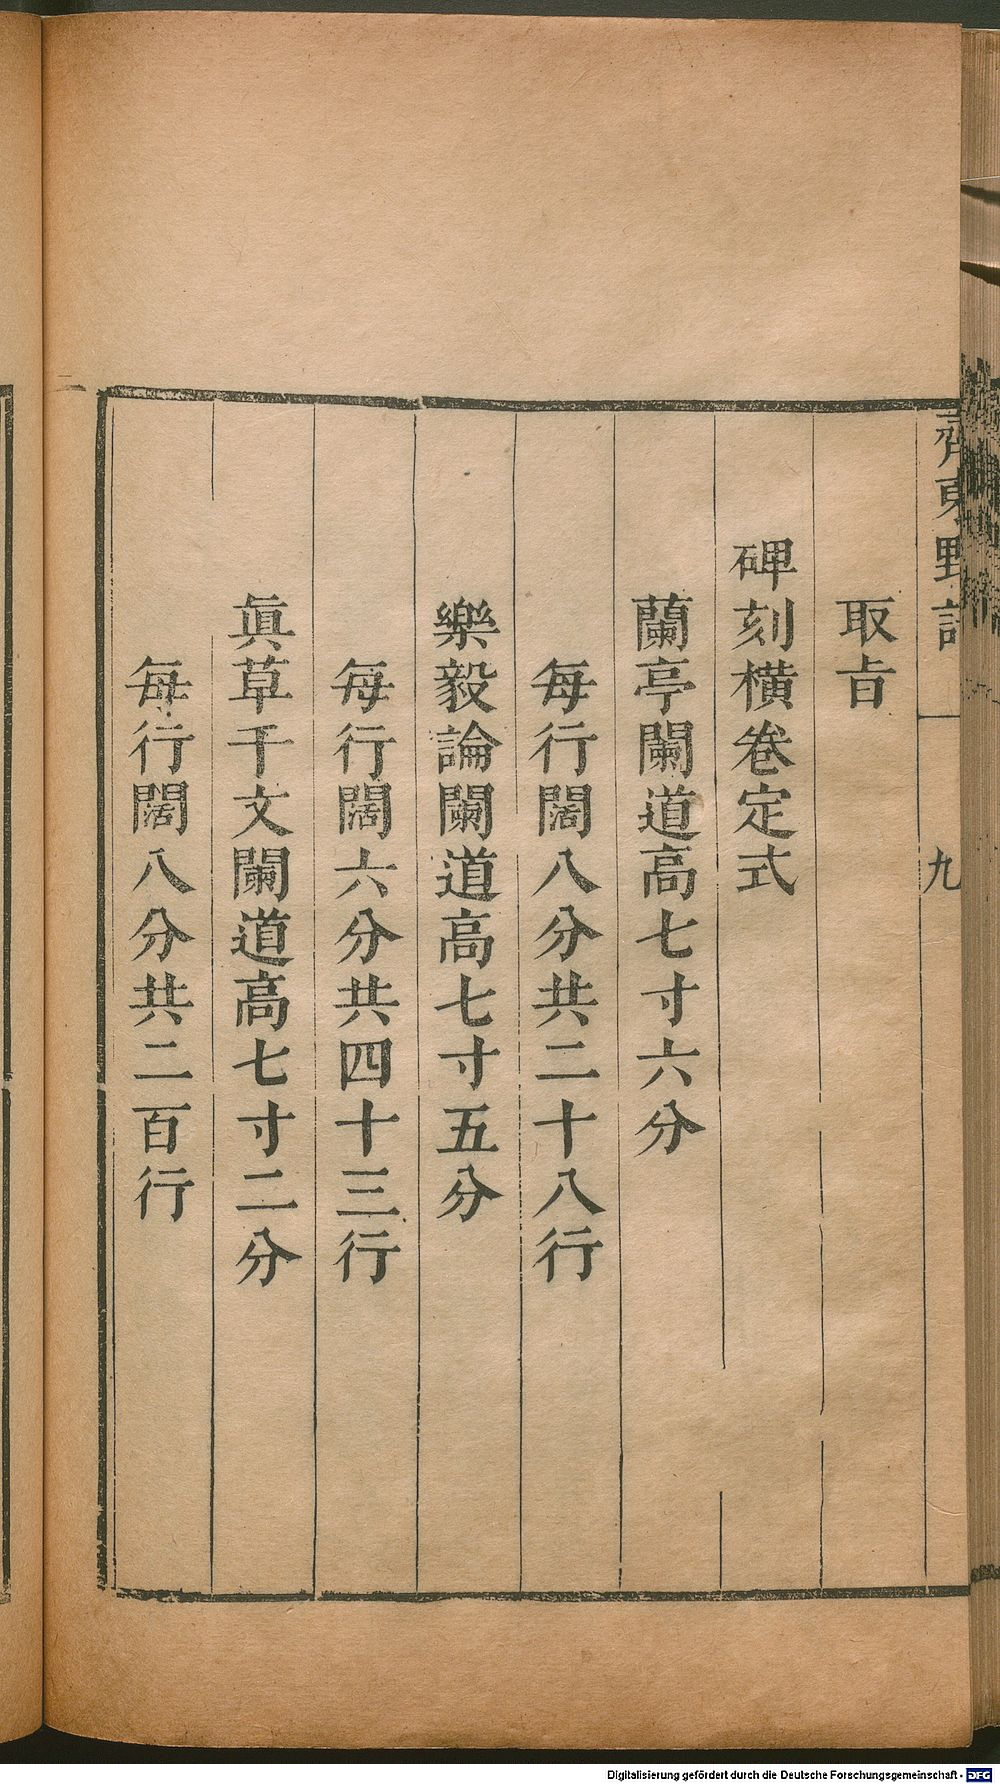 齊東野語
九
取㫖
碑刻橫卷定式
蘭亭闌道高七寸六分
每行闊八分共二十八行
樂毅論闌道高七寸五分
每行闊六分共四十三行
眞草千文闌道高七寸二分
每行闊八分共二百行
Digitalisierung gefördert durch die Deutsche Forschungsgemeinschaft - DFG